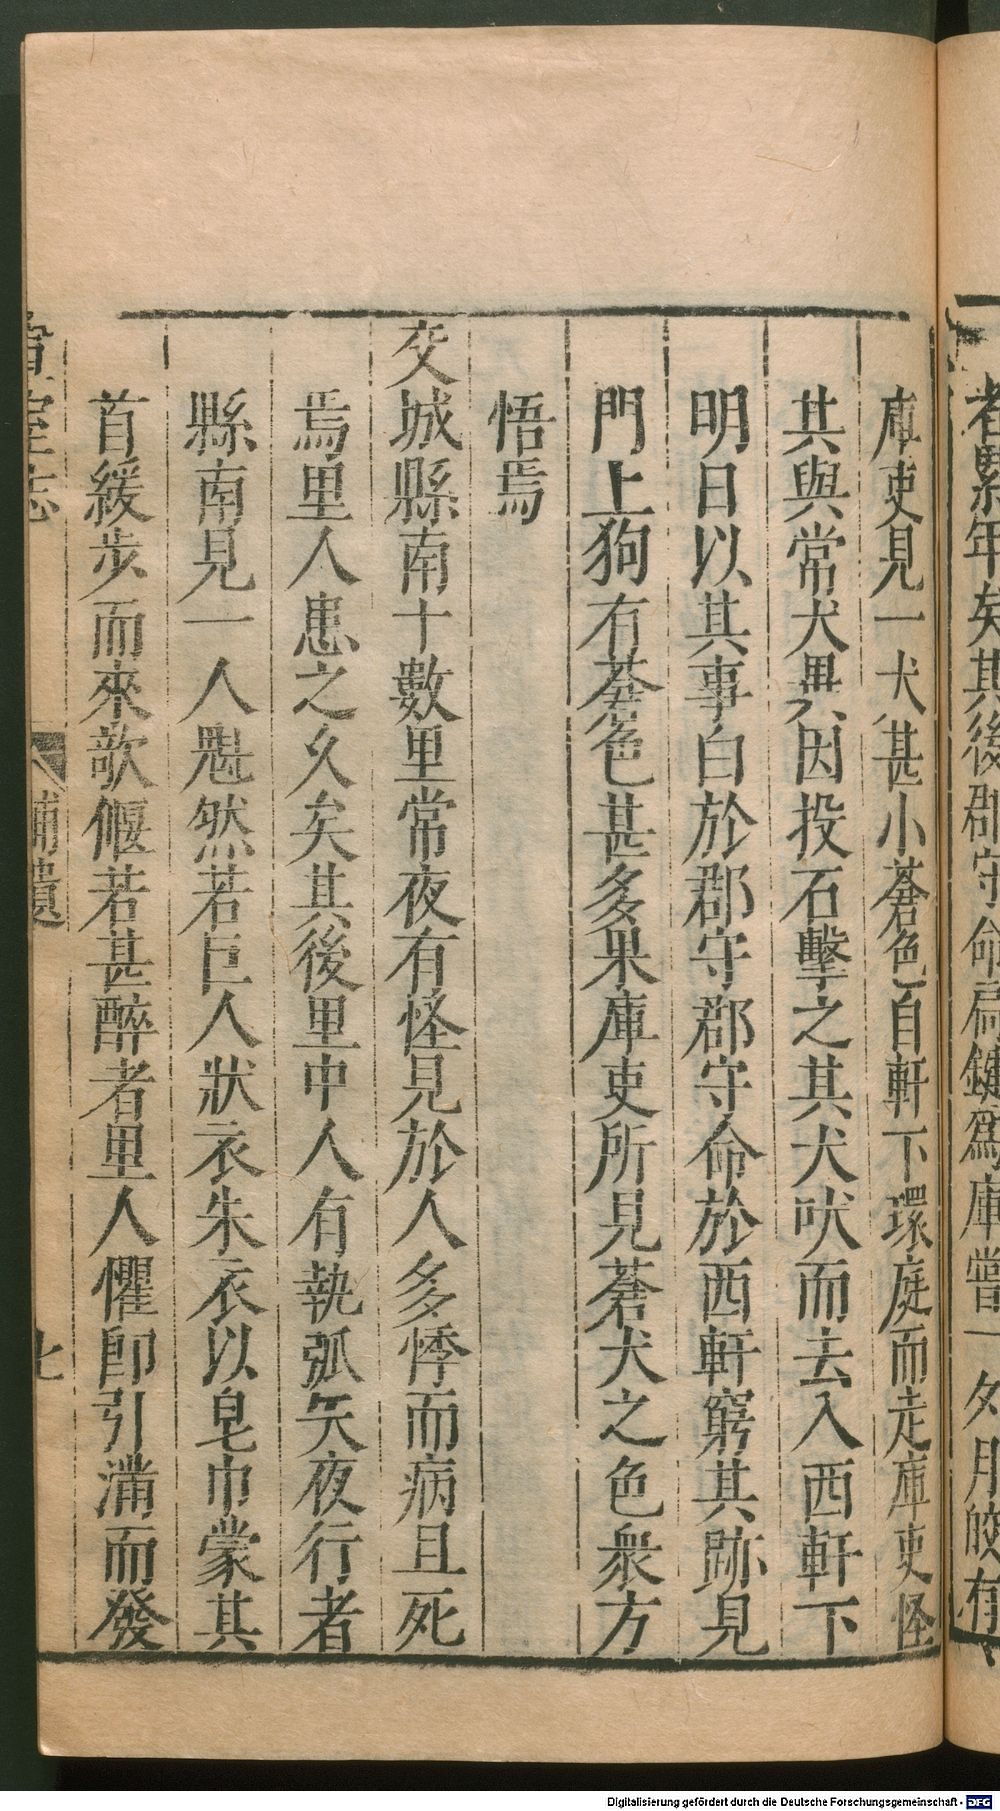 者縣年矣其後郡守命扃鍵爲庫嘗一夕月皎有
庫吏見一犬甚小蒼色自軒下環庭而走庫吏怪
其與常犬異因投石擊之其犬吠而去入西軒下
明日以其事白於郡守郡守命於西軒窮其跡見
門上狗有蒼色甚多果庫吏所見蒼犬之色衆方
悟焉
交城縣南十數里常夜有怪見於人多悸而病且死
焉里人患之久矣其後里中人有執弧矢夜行者
縣南見一人魁然若巨人狀衣朱衣以皂巾蒙其
首緩步而來欹偃若甚醉者里人懼卽引滿而發
宣室志 補遺 七
Digitalisierung gefördert durch die Deutsche Forschungsgemeinschaft - DFG